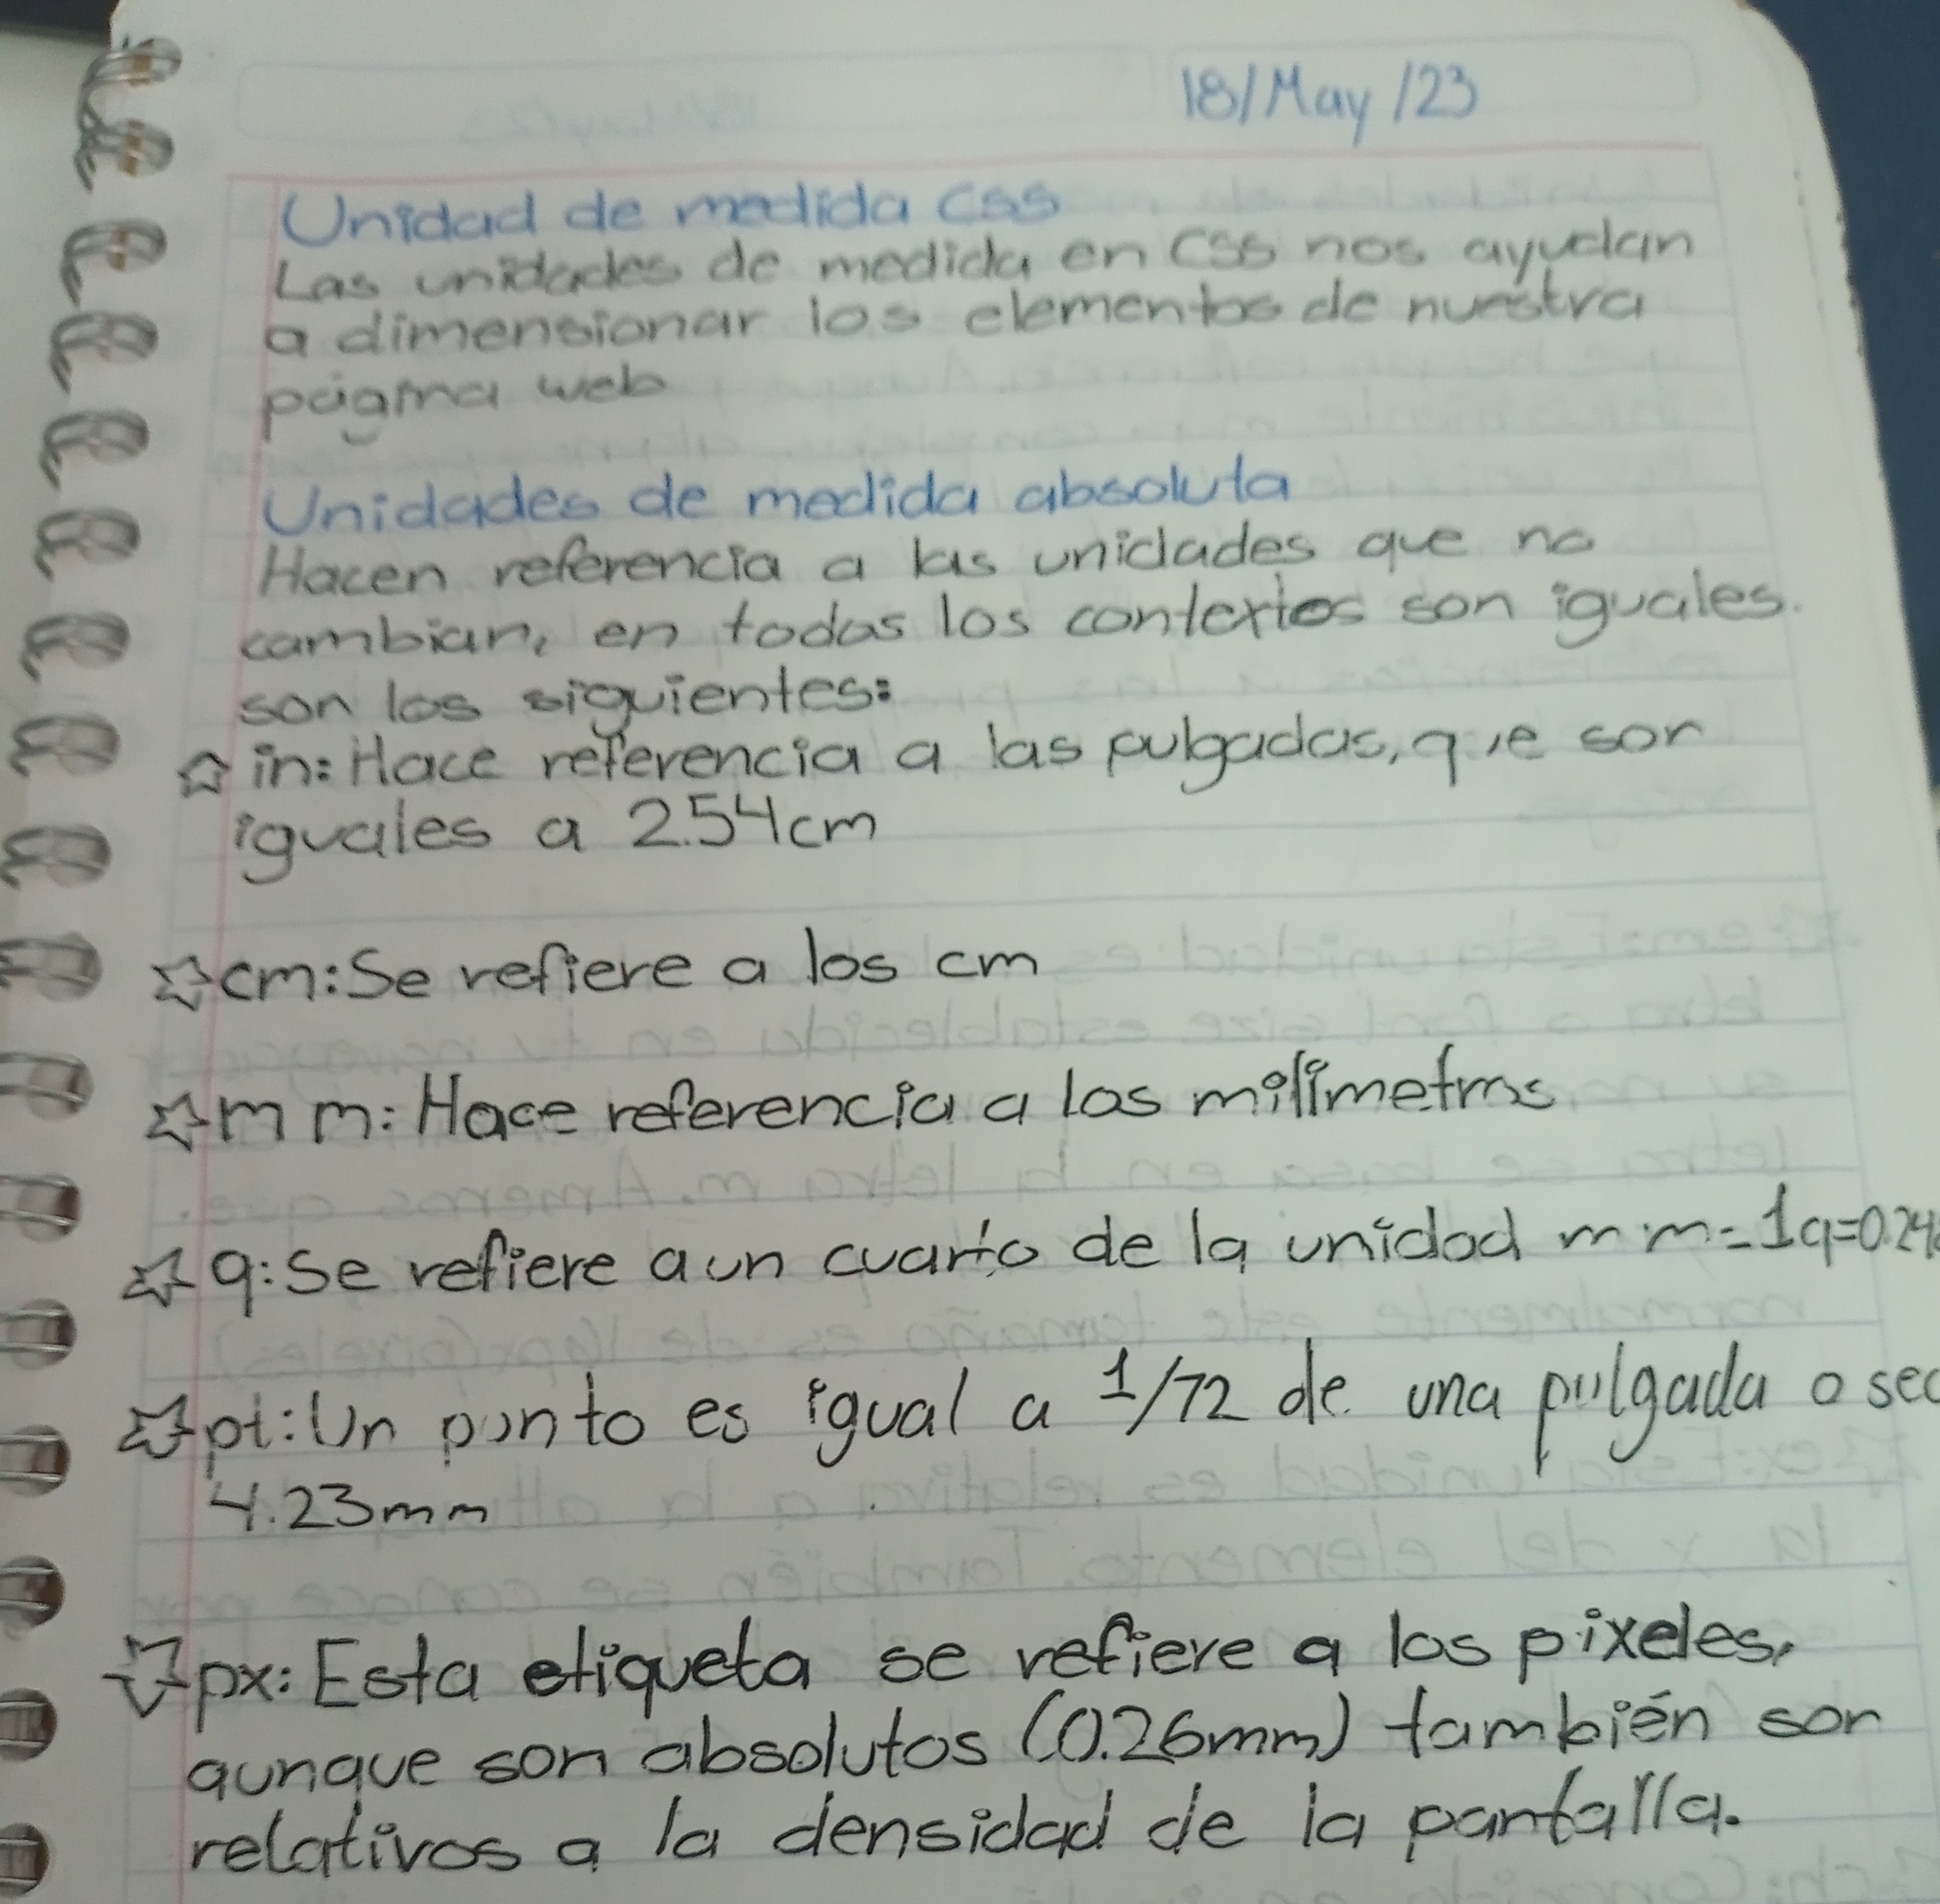 18/May/23
Unidad de medida css
Las unidades de medida en css nos ayudan
a dimensionar los elementos de nuestra
página web
Unidades de medida absoluta
Hacen referencia a las unidades que no
cambian, en todos los contextos son iguales.
son los siguientes:
☆ in: Hace referencia a las pulgadas, que son
iguales a 2.54cm
☆ cm: Se refiere a los cm
☆ mm: Hace referencia a los milímetros
☆ q: Se refiere a un cuarto de la unidad mm = 1q=0.24
☆ pt: Un punto es igual a 1/72 de una pulgada o sea
4.23mm
☆ px: Esta etiqueta se refiere a los pixeles,
aunque son absolutos (0.26mm) también son
relativos a la densidad de la pantalla.